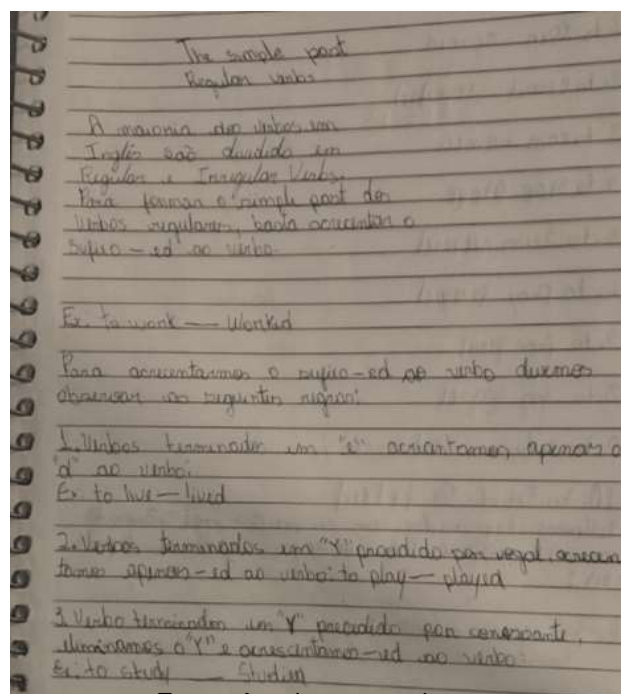 The simple past
Regular verbs
A maioria dos verbos em
Inglês são dividido em
Regular e Irregular Verbs.
Para formar o simple past dos
Verbos regulares, basta acrescentar o
sufixo -ed ao verbo.
Ex. to work — Worked
Para acrescentarmos o sufixo -ed ao verbo devemos
observar as seguintes regras:
1. Verbos terminados em "e" acrescentamos apenas o
"d" ao verbo.
Ex. to live — lived
2. Verbos terminados em "Y" precedido por vogal, acrescen
tamos apenas -ed ao verbo: to play — played
3. Verbo terminados em "Y" precedido por consoante,
eliminamos o "Y" e acrescentamos -ed ao verbo:
Ex. to study — Studied